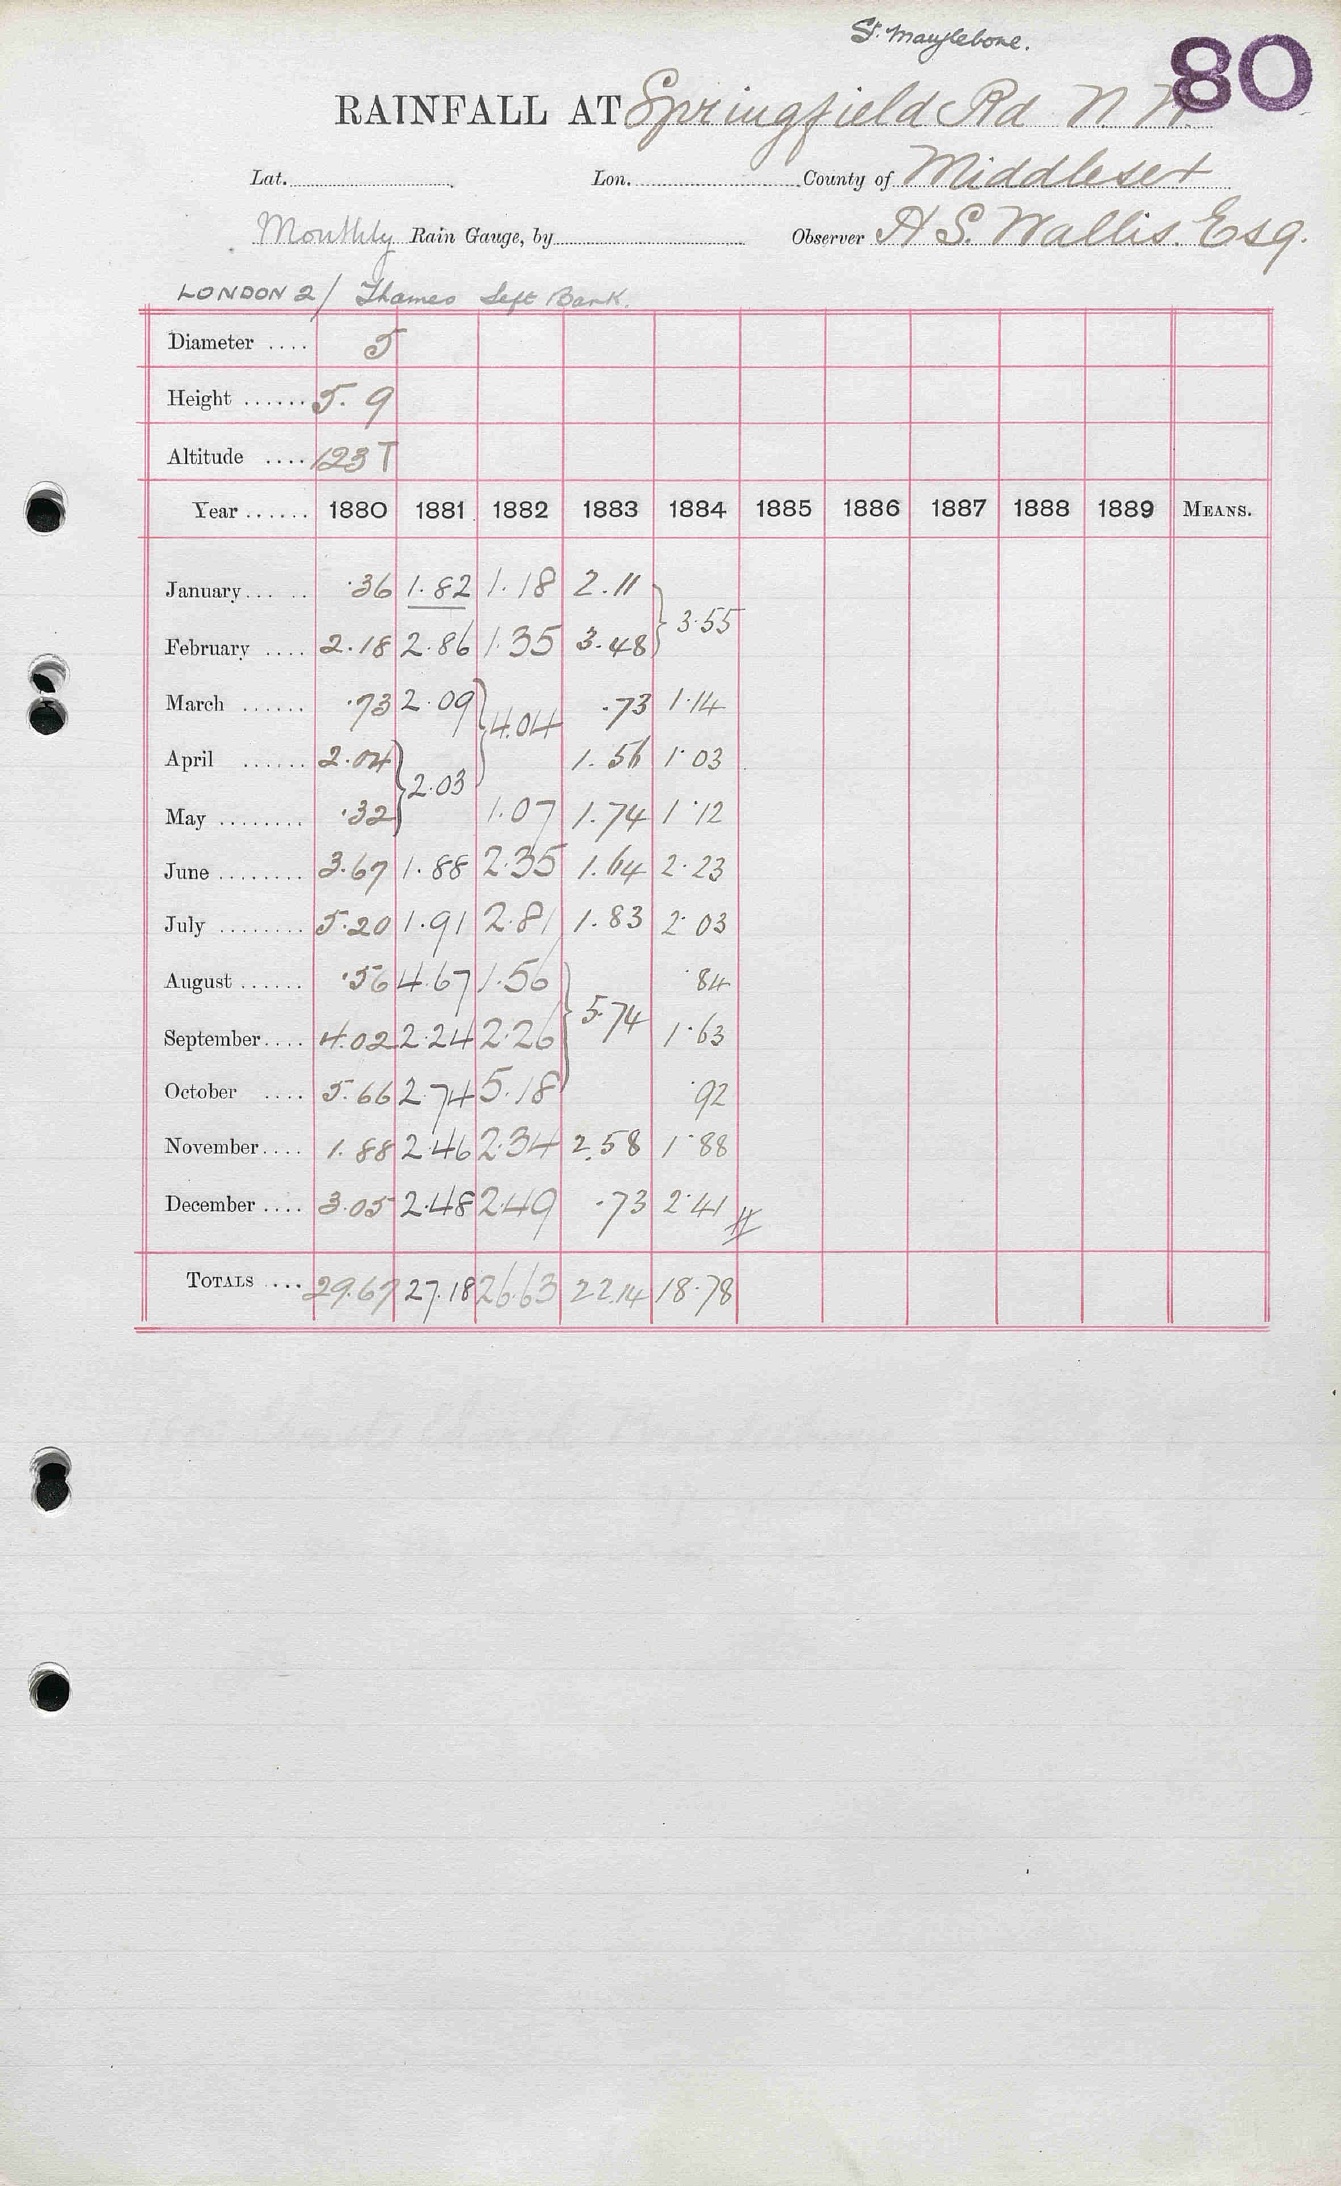 St. Marylebone.
80
RAINFALL AT Springfield Rd N.W.
Lat. Lon. County of Middlesex
Monthly Rain Gauge, by Observer H S. Wallis. Esq.
LONDON 2/ Thames Left Bank.
Diameter .... 5
Height ...... 5. 9
Altitude .... 123 T
Year ...... 1880 1881 1882 1883 1884 1885 1886 1887 1888 1889 MEANS.
January... .. ·36 1.82 1.18 2.11
} 3.55
February .... 2.18 2.86 1.35 3.48
March ...... ·73 2.09 } 4.04 .73 1.14
April ...... 2.04 } 2.03 1.56 1.03
May ........ ·32 1.07 1.74 1.12
June ........ 3.67 1.88 2.35 1.64 2.23
July ........ 5.20 1.91 2.81 1.83 2.03
August ...... ·56 4.67 1.56 ·84
September.... 4.02 2.24 2.26 } 5.74 1.63
October .... 5.66 2.74 5.18 ·92
November.... 1.88 2.46 2.34 2.58 1.88
December .... 3.05 2.48 2.49 .73 2.41
TOTALS ... 29.67 27.18 26.63 22.14 18.78